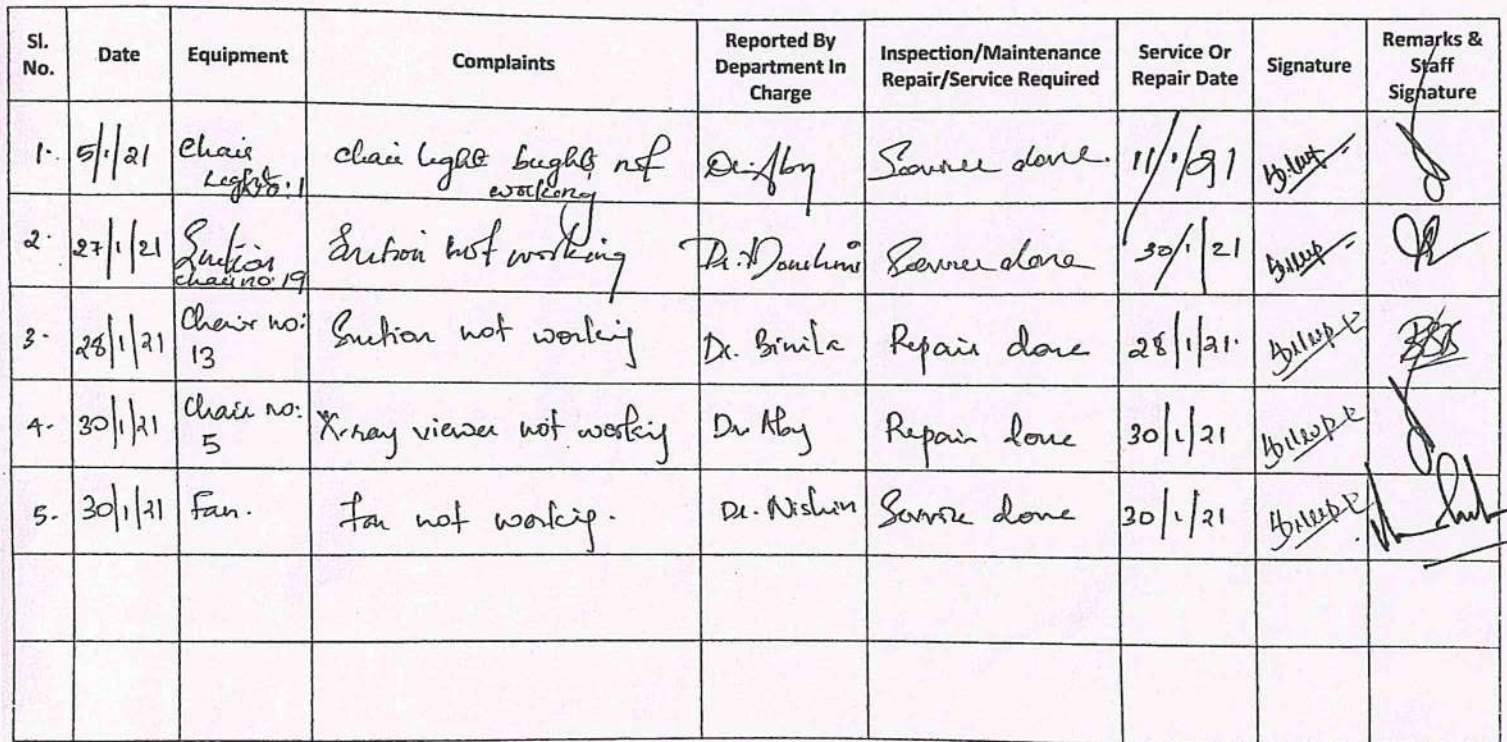 Sl. No. Date Equipment Complaints Reported By Department In Charge Inspection/Maintenance Repair/Service Required Service Or Repair Date Signature Remarks & Staff Signature
1. 5/1/21 Chair Light No: 1 chair light not working Dr. Aby Service done. 11/1/21
2. 27/1/21 Suction chair no: 19 Suction not working Dr. Service done 30/1/21
3. 28/1/21 Chair no: 13 Suction not working Dr. Binila Repair done 28/1/21.
4. 30/1/21 Chair no: 5 X-ray viewer not workig Dr Aby Repair done 30/1/21
5. 30/1/21 Fan. Fan not workig. Dr. Nishin Service done 30/1/21